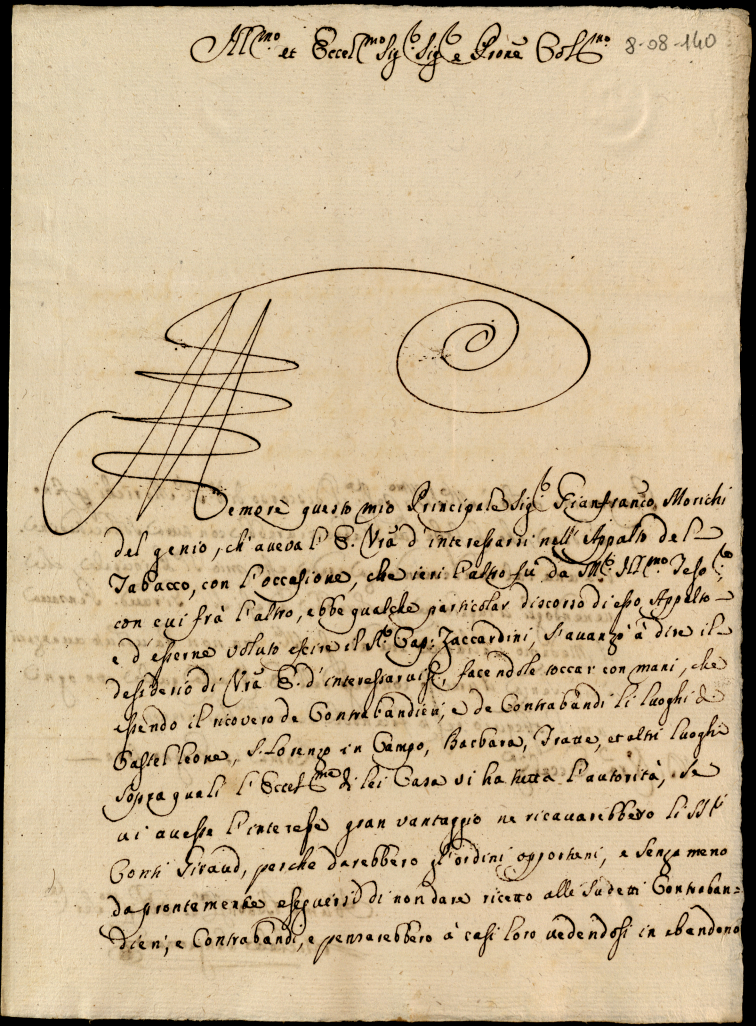 Ill.mo et Eccel.mo Sig.r Sig.r e Prone Col.mo 8-08-140
Memore questo mio Principale Sig.r Gianfranco Morichi
del genio, ch'aveva l'E. Vra d'interessarsi nell'Appalto del
Tabacco, con l'occasione, che ieri l'altro fù da M.r Ill.mo Teso.re
con cui frà l'altro, ebbe qualche particolar discorso di esso Appalto
e d'esserne voluto escire il S.r Cap: Zaccardini, s'avanzò à dire il
desiderio di Vra E. d'interessarvisi, facendole toccar con mani, che
essendo il ricovero de Contrabandieri, e de Contrabandi li luoghi di
Castel Leone, S. Lorenzo in Campo, Barbara, Tratte, et altri luoghi
sopra quali l'Eccel.ma di lei Casa vi ha tutta l'autorità, se
vi avesse l'interesse gran vantaggio ne ricavarebbero li SS.ri
Conti Giraud, perche darebbero gl'ordini opportuni, e senza meno
da prontemente eseguirsi di non dare ricetto alli sudetti Contraban=
dieri, e Contrabandi, e pensarebbero à casi loro vedendosi in abandono